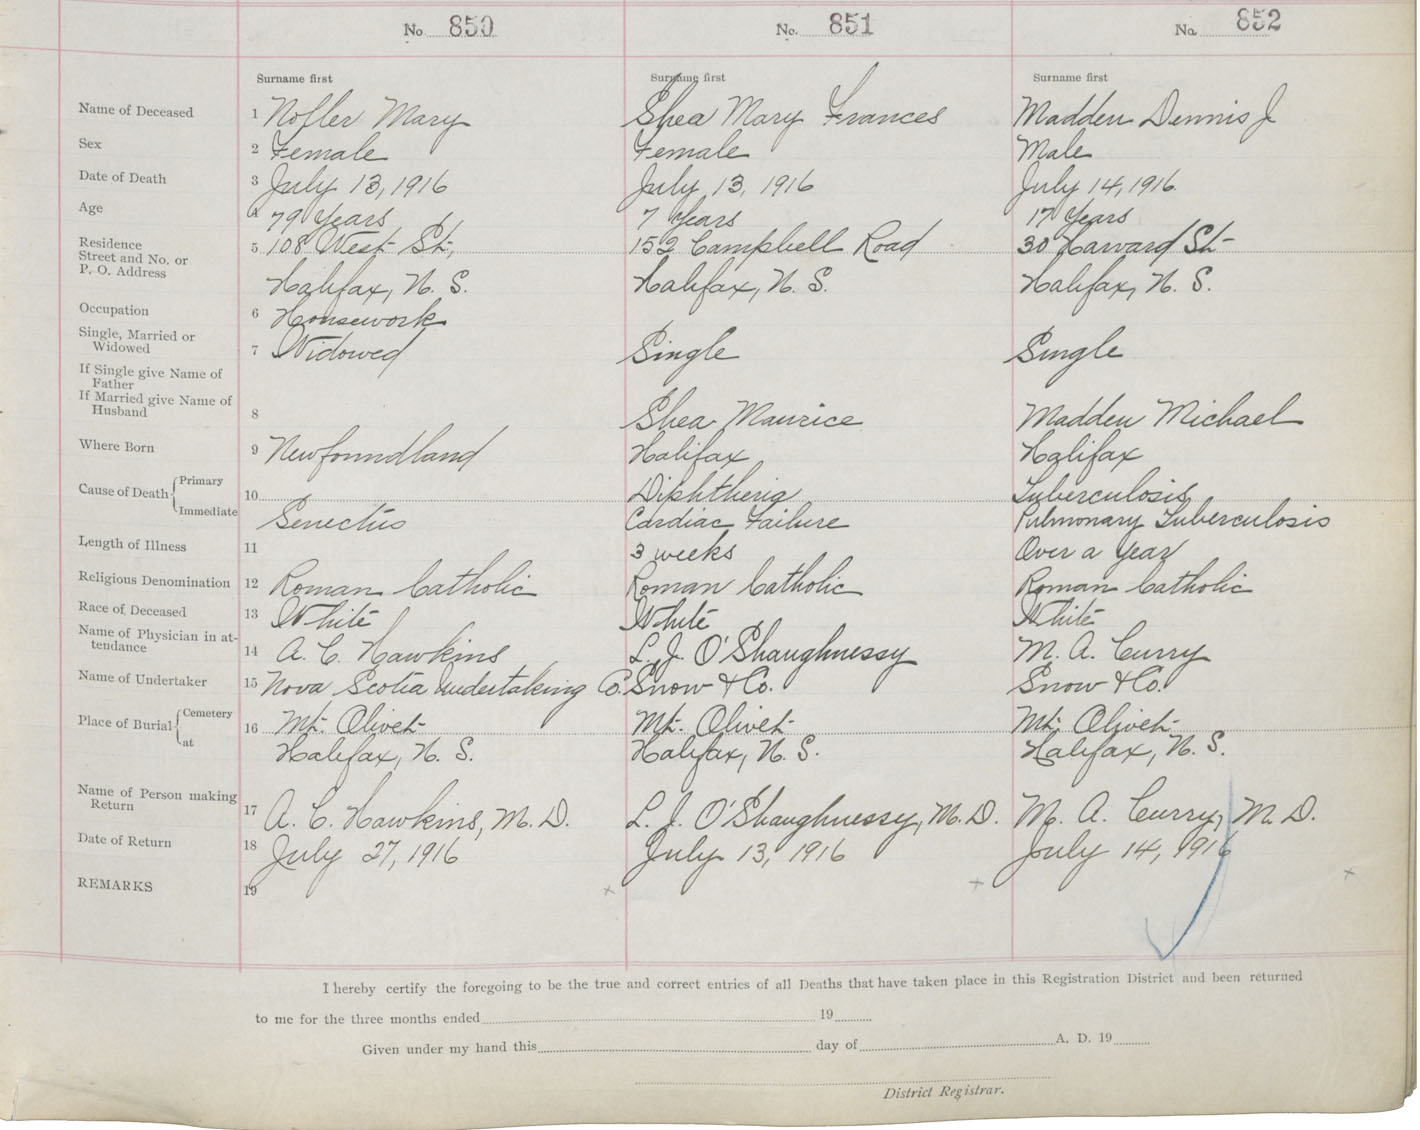 No 850 No. 851 No. 852
Surname first Surname first Surname first
Name of Deceased 1 Nofler Mary Shea Mary Frances Madden Dennis J
Sex 2 Female Female Male
Date of Death 3 July 13, 1916 July 13, 1916 July 14, 1916.
Age 4 79 Years 7 Years 17 Years
Residence
Street and No. or 5 108 West St, 152 Campbell Road 30 Harvard St
P. O. Address Halifax, N. S. Halifax, N. S. Halifax, N. S.
Occupation 6 Housework
Single, Married or
Widowed 7 Widowed Single Single
If Single give Name of
Father
If Married give Name of
Husband 8 Shea Maurice Madden Michael
Where Born 9 Newfoundland Halifax Halifax
Cause of Death Primary 10 Diphtheria Tuberculosis
Immediate Senectus Cardiac Failure Pulmonary Tuberculosis
Length of Illness 11 3 weeks Over a Year
Religious Denomination 12 Roman Catholic Roman Catholic Roman Catholic
Race of Deceased 13 White White White
Name of Physician in at-
tendance 14 A. C. Hawkins L. J. O'Shaughnessy M. A. Curry
Name of Undertaker 15 Nova Scotia Undertaking Co. Snow & Co. Snow & Co.
Place of Burial Cemetery 16 Mt. Olivet Mt. Olivet Mt. Olivet
at Halifax, N. S. Halifax, N. S. Halifax, N. S.
Name of Person making
Return 17 A. C. Hawkins, M. D. L. J. O'Shaughnessy, M. D. M. A. Curry, M. D.
Date of Return 18 July 27, 1916 July 13, 1916 July 14, 1916
REMARKS 19
I hereby certify the foregoing to be the true and correct entries of all Deaths that have taken place in this Registration District and been returned
to me for the three months ended 19
Given under my hand this day of A. D. 19
District Registrar.